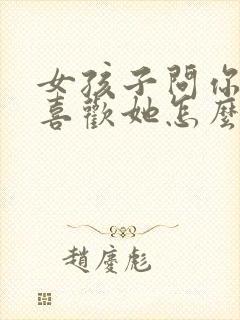 女孩子問你
喜歡她怎麼
趙慶彪